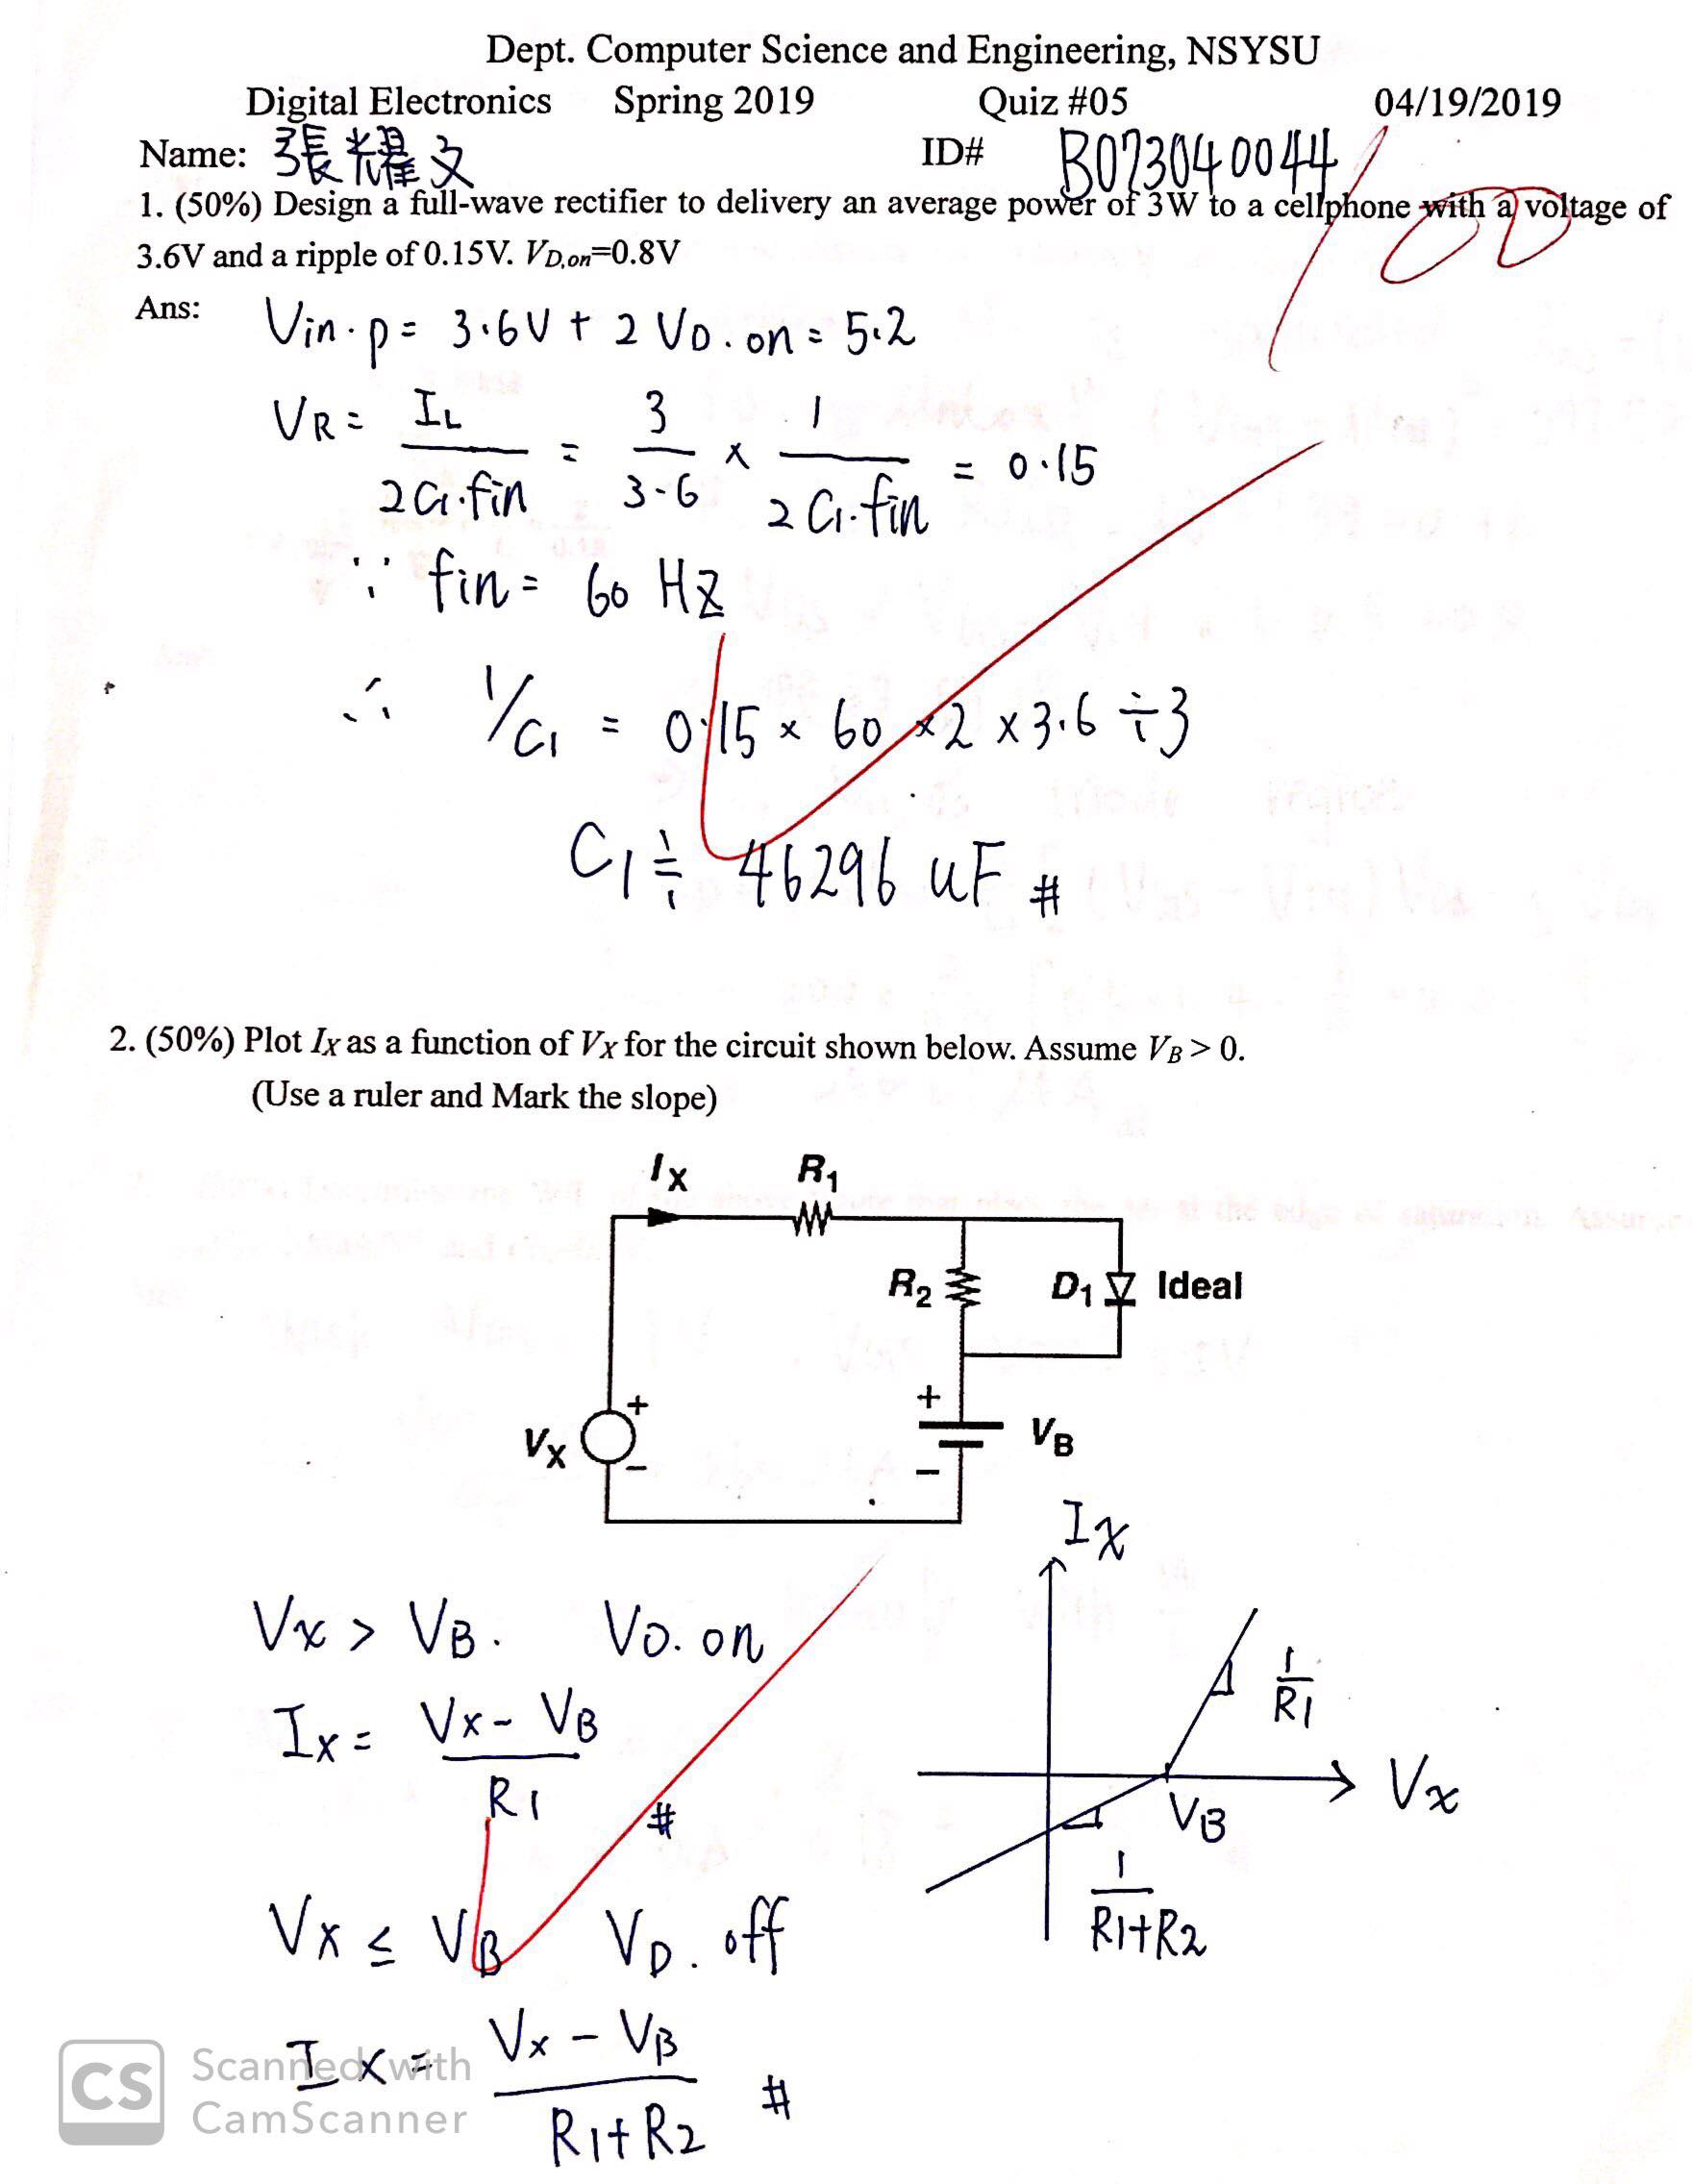 Dept. Computer Science and Engineering, NSYSU
Digital Electronics Spring 2019 Quiz #05 04/19/2019
Name: 張耀文 ID# B073040044
100
1. (50%) Design a full-wave rectifier to delivery an average power of 3W to a cellphone with a voltage of
3.6V and a ripple of 0.15V. VD,on=0.8V
Ans: Vin.p = 3.6V + 2 VD.on = 5.2
VR = IL / 2C1.fin = 3 / 3.6 × 1 / 2C1.fin = 0.15
∵ fin = 60 HZ
∴ 1/C1 = 0.15 × 60 × 2 × 3.6 ÷ 3
C1 ≒ 46296 uF #
2. (50%) Plot IX as a function of VX for the circuit shown below. Assume VB > 0.
(Use a ruler and Mark the slope)
IX R1
R2 D1 Ideal
+
+
VX VB
−
−
Ix
Vx > VB. VD. on
1/R1
Ix = Vx - VB / R1 #
Vx
VB
Vx ≤ VB VD. off
1/R1+R2
Ix = Vx - VB / R1+R2 #
CS Scanned with
CamScanner